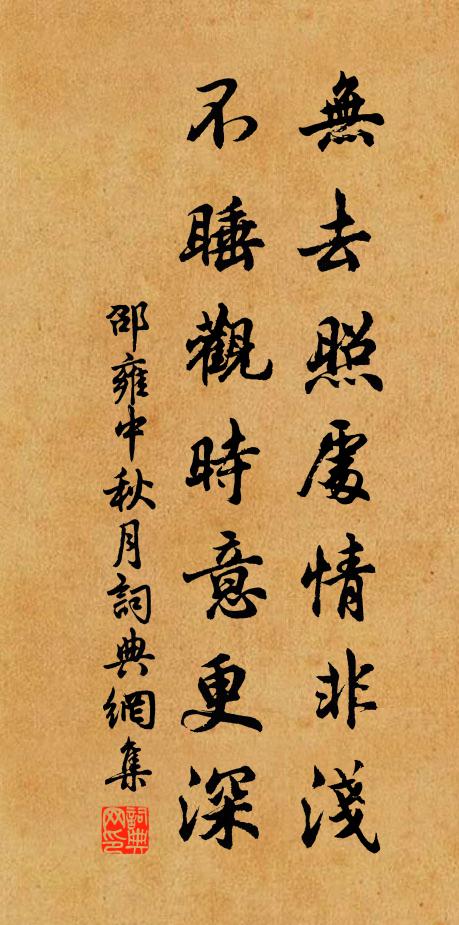 無去照處情非淺
不睡觀時意更深
邵雍中秋月詞典網集
詞典网印